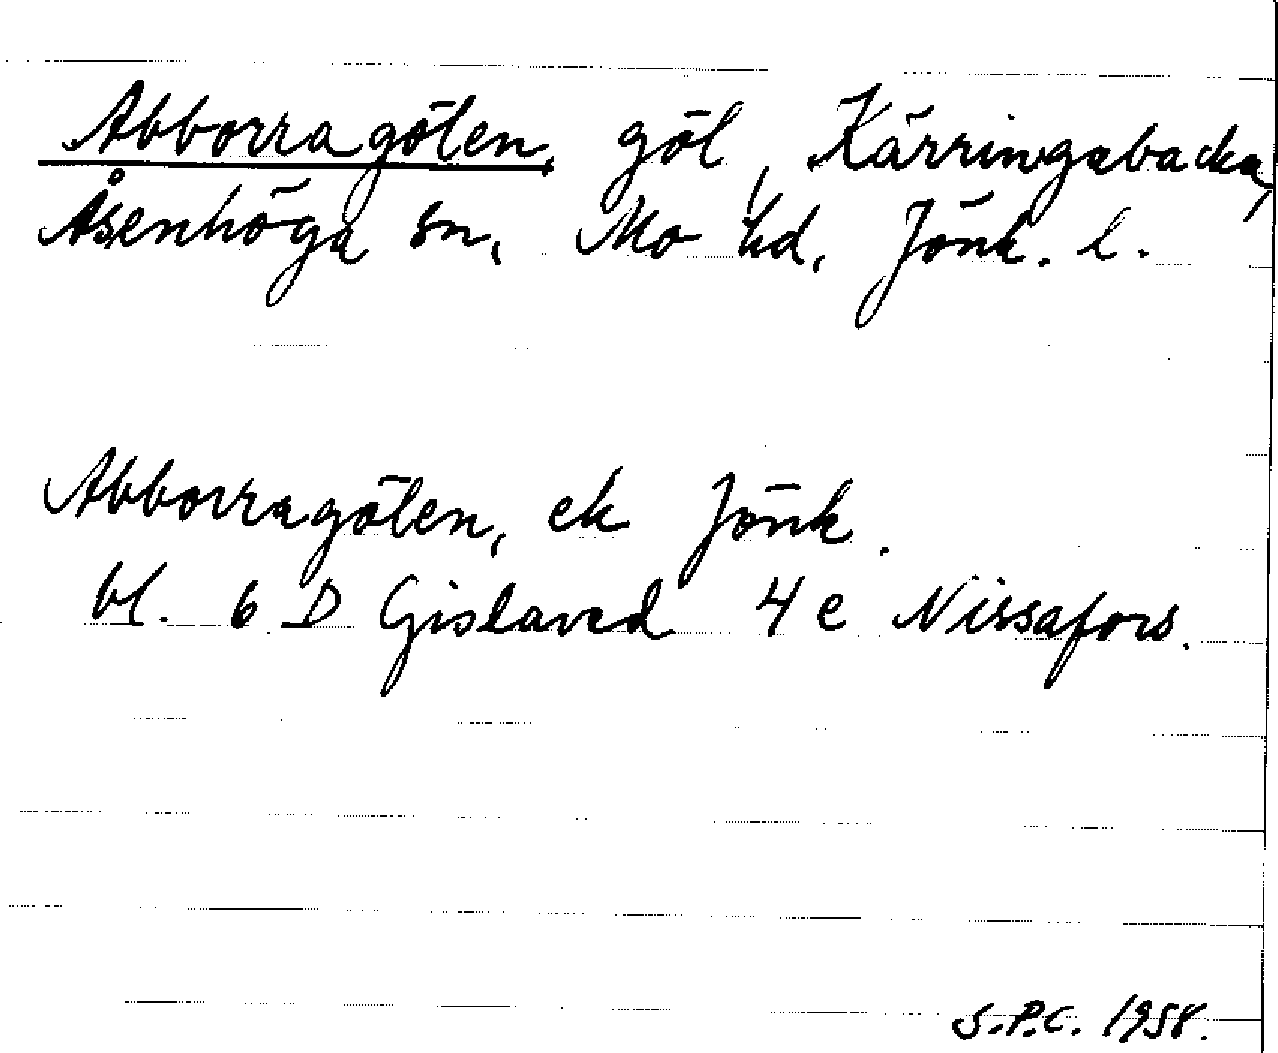 Abborragölen, göl, Kärringabacka,
Åsenhöga sn, Mo hd, Jönk. l.
Abborragölen, ek Jönk.
bl. 6 D Gislaved 4 e Nissafors.
S.P.C. 1958.